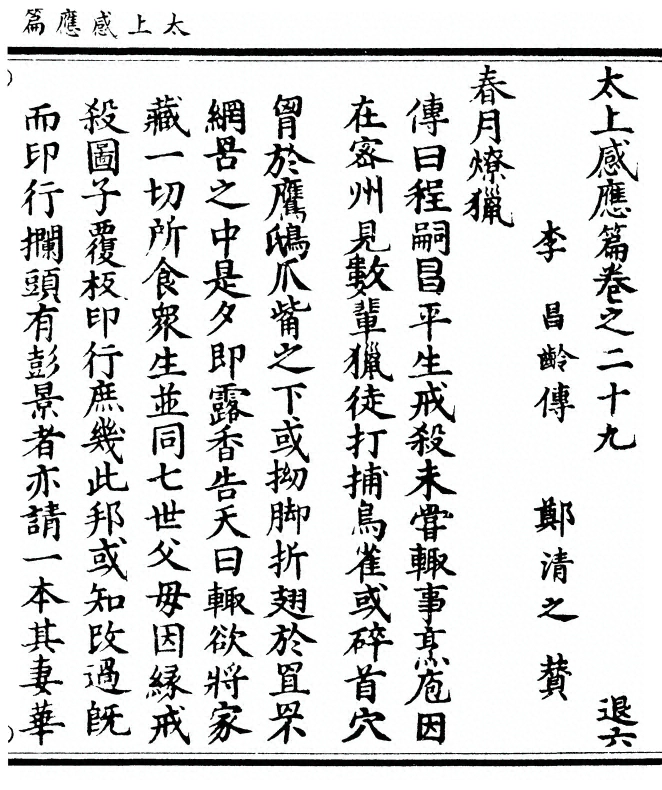 太上感應篇
太上感應篇卷之二十九 退六
李昌齡傳 鄭清之賛
春月燎獵
傳曰程嗣昌平生戒殺未甞輙事烹庖因
在密州見數輩獵徒打捕鳥雀或碎首穴
胷於鷹鴟爪觜之下或拗脚折翅於罝罘
網罟之中是夕即露香告天曰輙欲將家
藏一切所食衆生並同七世父母因縁戒
殺圖子覆板印行庶幾此邦或知改過旣
而印行攔頭有彭景者亦請一本其妻華